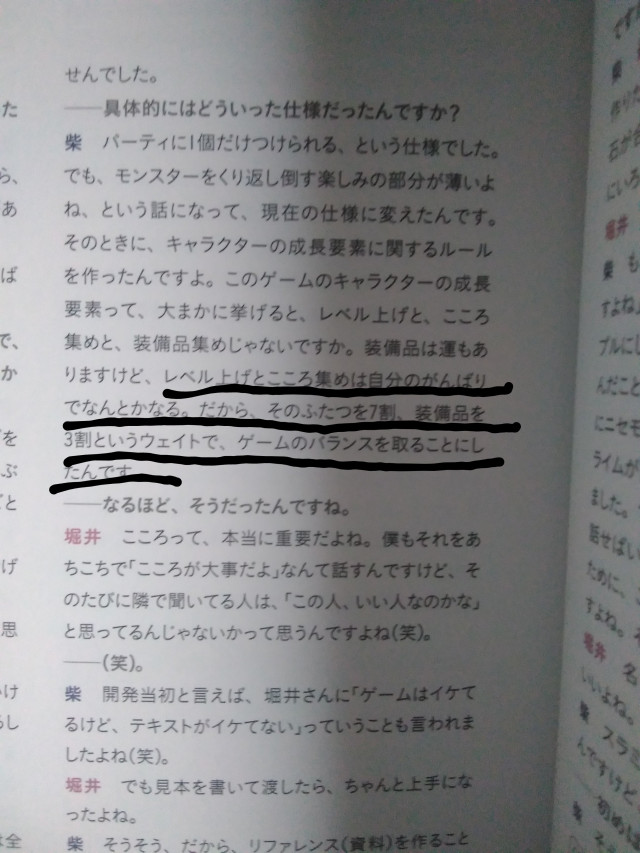 せんでした。
――具体的にはどういった仕様だったんですか？
柴　パーティに1個だけつけられる、という仕様でした。
でも、モンスターをくり返し倒す楽しみの部分が薄いよ
ね、という話になって、現在の仕様に変えたんです。
そのときに、キャラクターの成長要素に関するルール
を作ったんですよ。このゲームのキャラクターの成長
要素って、大まかに挙げると、レベル上げと、こころ
集めと、装備品集めじゃないですか。装備品は運もあ
りますけど、レベル上げとこころ集めは自分のがんばり
でなんとかなる。だから、そのふたつを7割、装備品を
3割というウェイトで、ゲームのバランスを取ることにし
たんです
――なるほど、そうだったんですね。
堀井　こころって、本当に重要だよね。僕もそれをあ
ちこちで「こころが大事だよ」なんて話すんですけど、そ
のたびに隣で聞いてる人は、「この人、いい人なのかな」
と思ってるんじゃないかって思うんですよね（笑）。
――（笑）。
柴　開発当初と言えば、堀井さんに「ゲームはイケて
るけど、テキストがイケてない」っていうことも言われま
したよね（笑）。
堀井　でも見本を書いて渡したら、ちゃんと上手にな
ったよね。
柴　そうそう、だから、リファレンス（資料）を作ること
た
ら、
あ
ば
で、
か
を
ぶ
と
げ
思
け
し
は全
ですか
柴
作りた
石が合
にいろ
堀井
柴　も
すよね」
ブルにし
んだこと
にニセモ
ライムが
ました。
話せばい
ために、こ
すよね。
堀井　名
いいよね。
柴　スラミ
んですけど
――初め
柴　そ